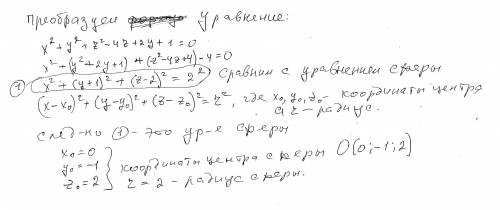 преобразуем уравнение:
x² + y² + z² - 4z + 2y + 1 = 0
x² + (y² + 2y + 1) + (z² - 4z + 4) - 4 = 0
① x² + (y + 1)² + (z - 2)² = 2² Сравним с уравнением сферы
(x - x₀)² + (y - y₀)² + (z - z₀)² = r², где x₀, y₀, z₀ - координаты центра
a r - радиус.
след-но ① - это ур-е сферы
x₀ = 0
y₀ = -1 } координаты центра сферы O(0; -1; 2)
z₀ = 2 r = 2 - радиус сферы.